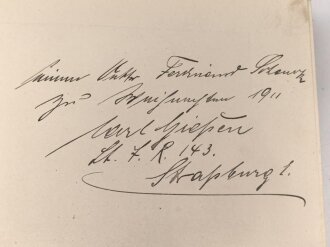 seinem Vetter Ferdinand
zu Weihnachten 1911
Karl Gießen
Lt. J. R. 143.
Straßburg i.